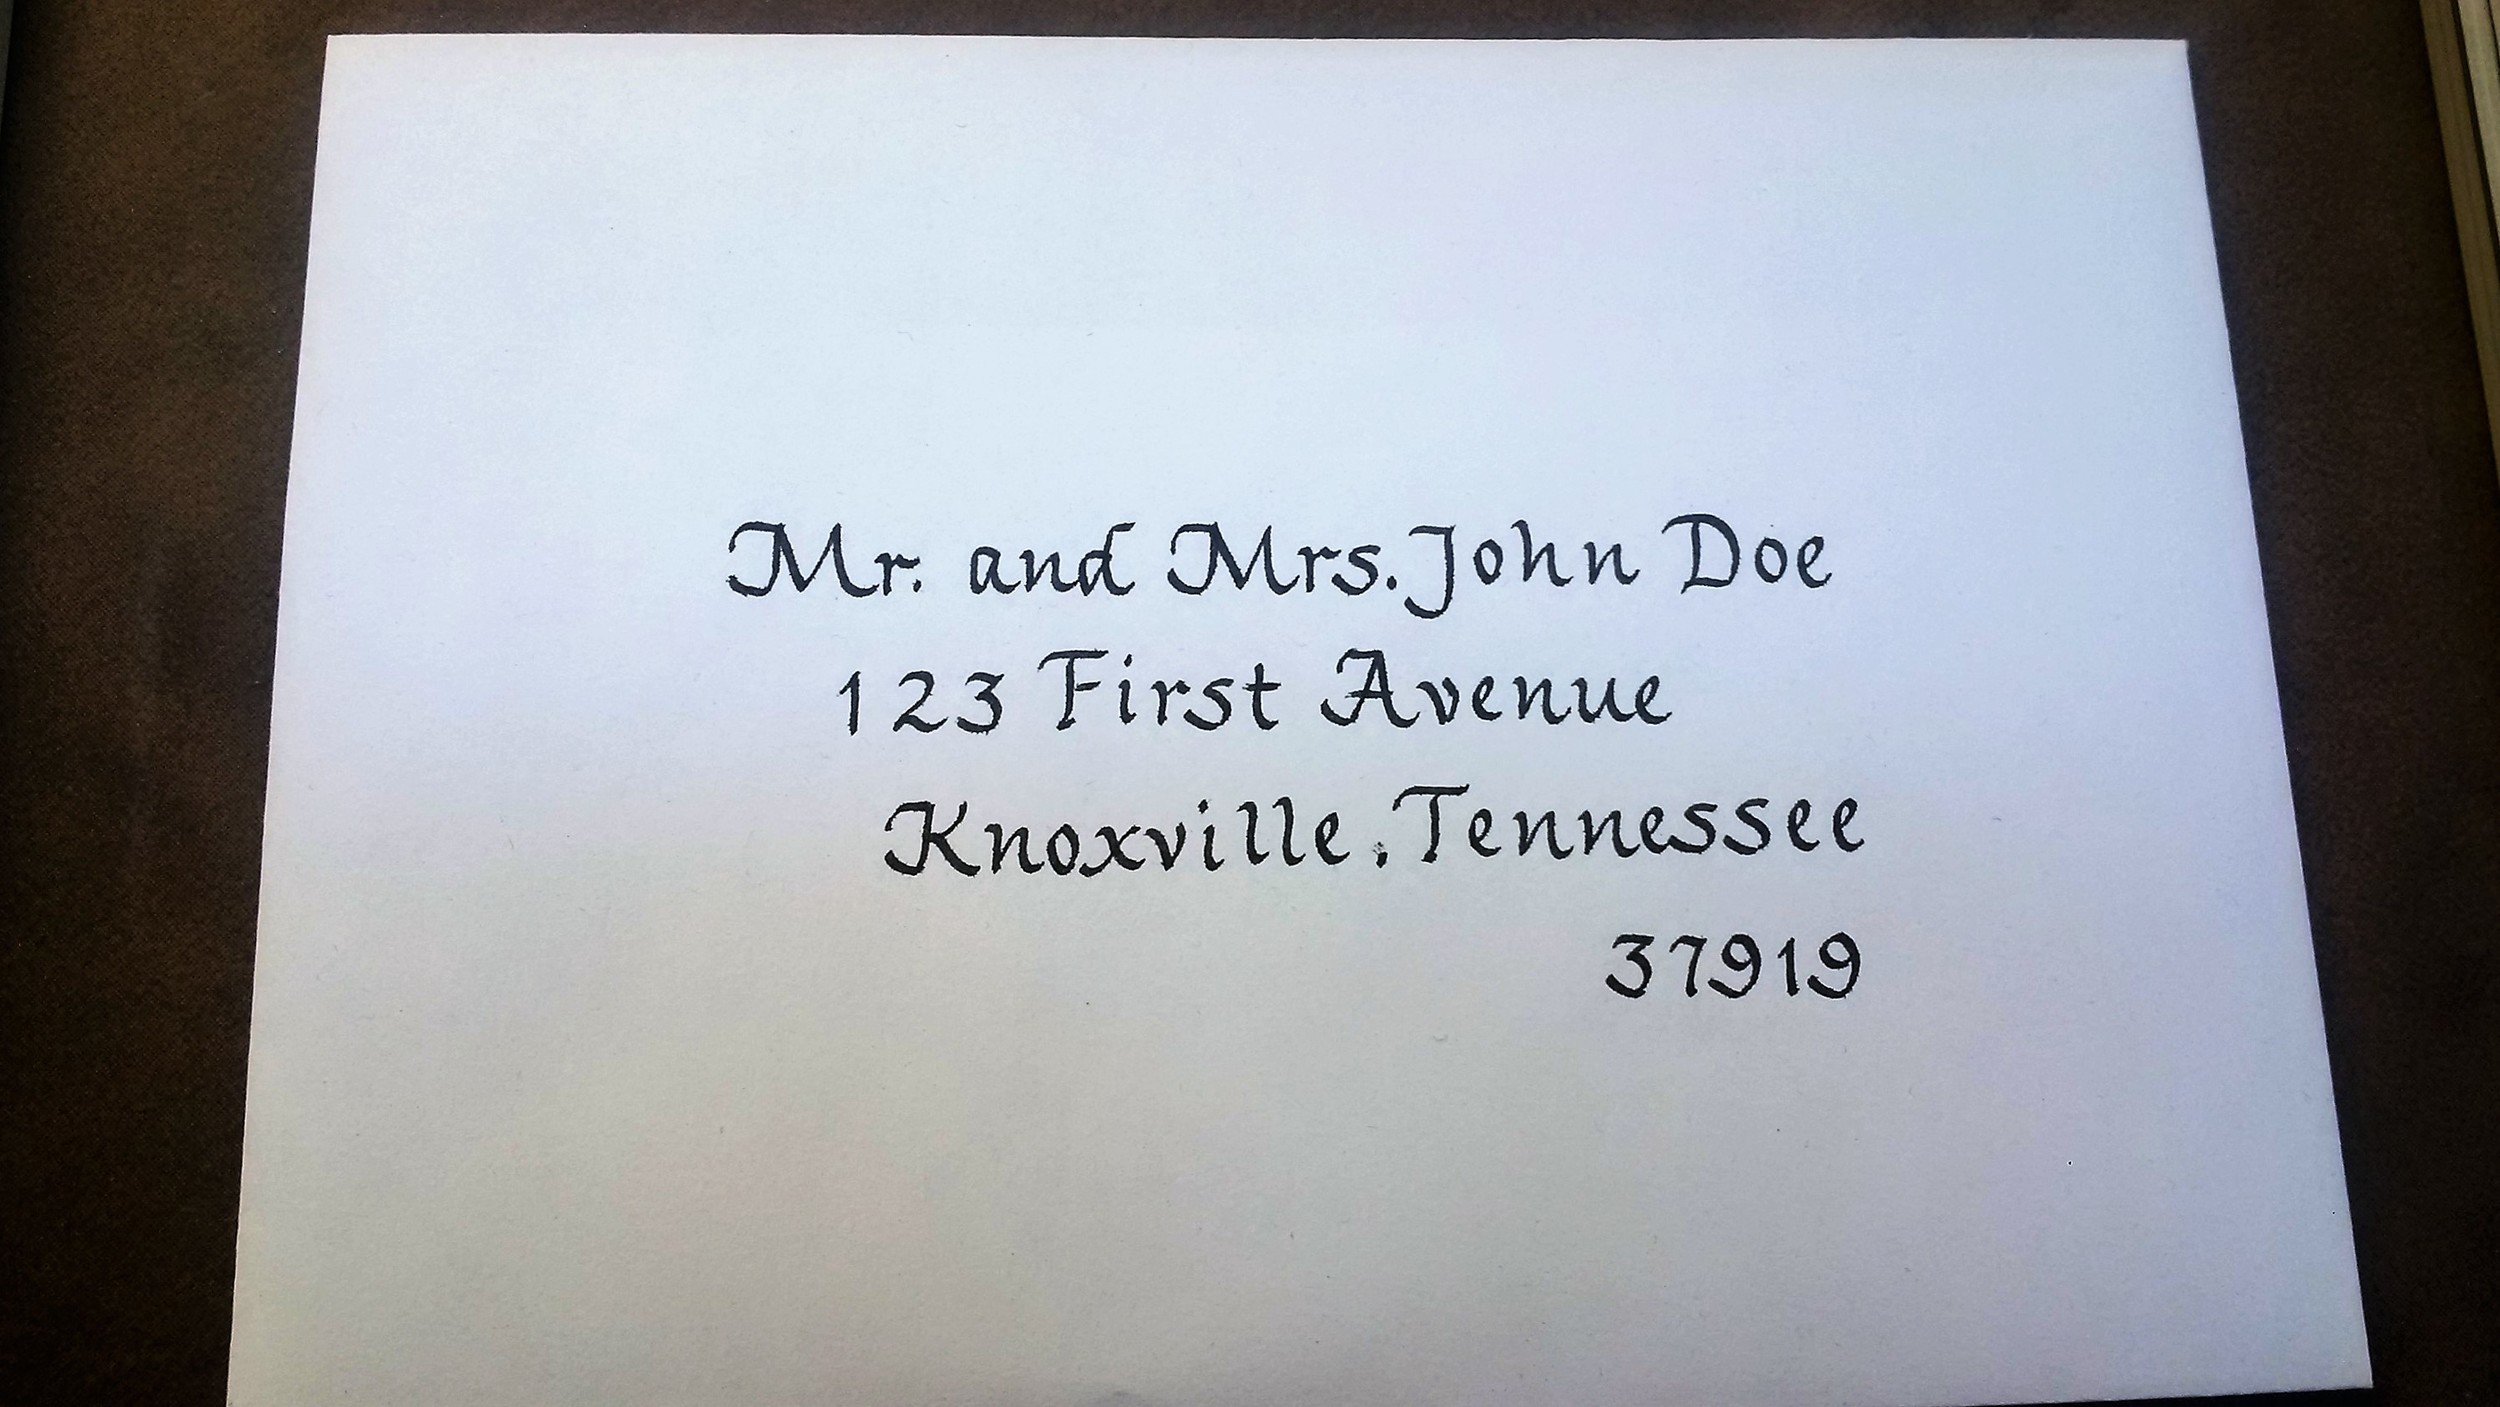 Mr. and Mrs. John Doe
123 First Avenue
Knoxville, Tennessee
37919